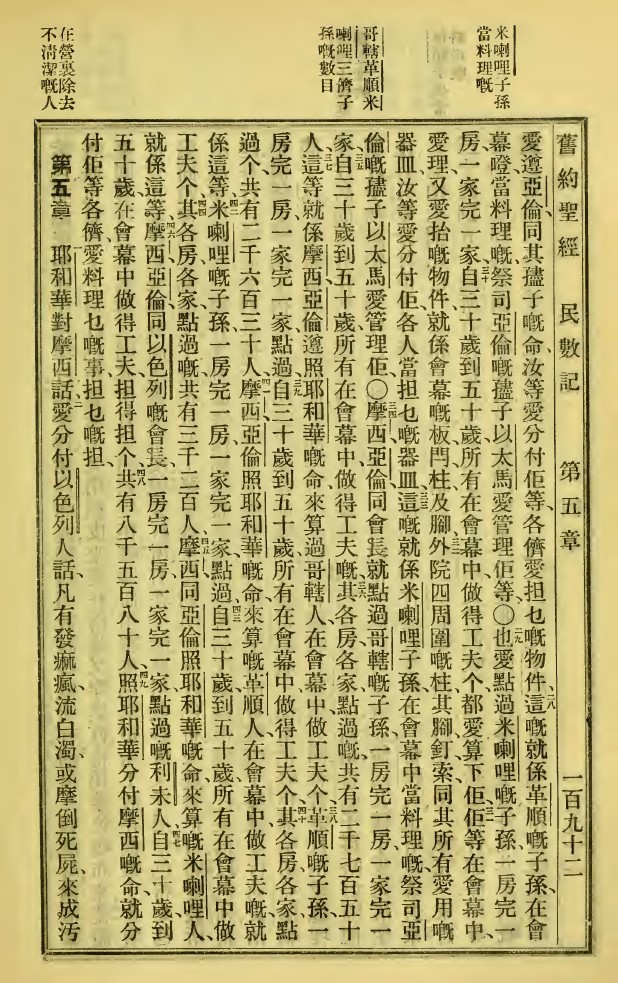 米喇哩子孫
當料理嘅
哥轄革順米
喇哩三儕子
孫嘅數目
在營裏除去
不清潔嘅人
舊約聖經 民數記 第五章 一百九十二
愛遵亞倫同其𤘅子嘅命、汝等愛分付佢等、各儕愛担乜嘅物件、二八這嘅就係革順嘅子孫、在會
幕噔當料理嘅、祭司亞倫嘅𤘅子以太馬愛管理佢等、〇二九也愛點過米喇哩嘅子孫、一房完一
房、一家完一家、三十自三十歲到五十歲、所有在會幕中、做得工夫个、都愛算下佢、三一佢等在會幕中、
愛理、又愛抬嘅物件、就係會幕嘅板、閂、柱、及腳、三二外院四周圍嘅柱、其腳、釘、索、同其所有愛用嘅
器皿、汝等愛分付佢各人當担乜嘅器皿、三三這嘅就係米喇哩子孫、在會幕中當料理嘅、祭司亞
倫嘅𤘅子以太馬愛管理佢、〇三四摩西亞倫同會長、就點過哥轄嘅子孫、一房完一房、一家完一
家、三五自三十歲到五十歲、所有在會幕中做得工夫嘅、三六其各房各家點過嘅、共有二千七百五十
人、三七這等就係摩西亞倫、遵照耶和華嘅命、來算過哥轄人、在會幕中做工夫个、三八革順嘅子孫、一
房完一房、一家完一家點過、三九自三十歲到五十歲、所有在會幕中做得工夫个、四十其各房各家點
過个、共有二千六百三十人、四一摩西亞倫照耶和華嘅命、來算嘅革順人、在會幕中做工夫嘅、就
係這等、四二米喇哩嘅子孫、一房完一房、一家完一家點過、四三自三十歲到五十歲、所有在會幕中做
工夫个、四四其各房各家點過嘅、共有三千二百人、四五摩西同亞倫照耶和華嘅命、來算嘅米喇哩人、
就係這等、四六摩西亞倫同以色列嘅會長、一房完一房、一家完一家點過嘅利未人、四七自三十歲到
五十歲、在會幕中做得工夫担得担个、四八共有八千五百八十人、四九照耶和華分付摩西嘅命、就分
付佢等各儕、愛料理乜嘅事、担乜嘅担、
第五章 一耶和華對摩西話、二愛分付以色列人話、凡有發痲瘋、流白濁、或摩倒死屍、來成汚